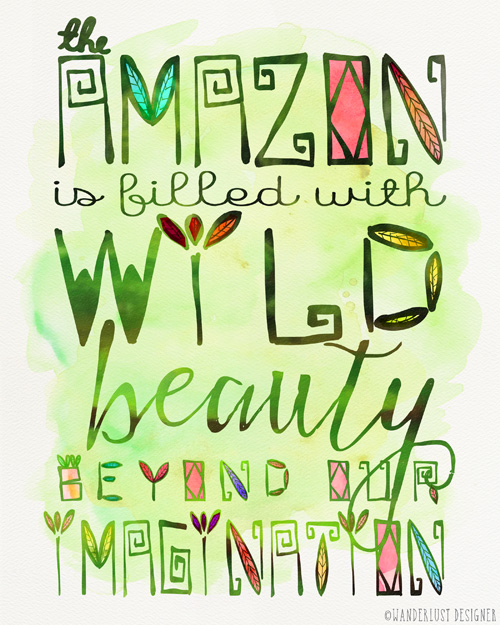 the
AMAZON
is filled with
WILD
beauty
BEYOND OUR
IMAGINATION
©WANDERLUST DESIGNER